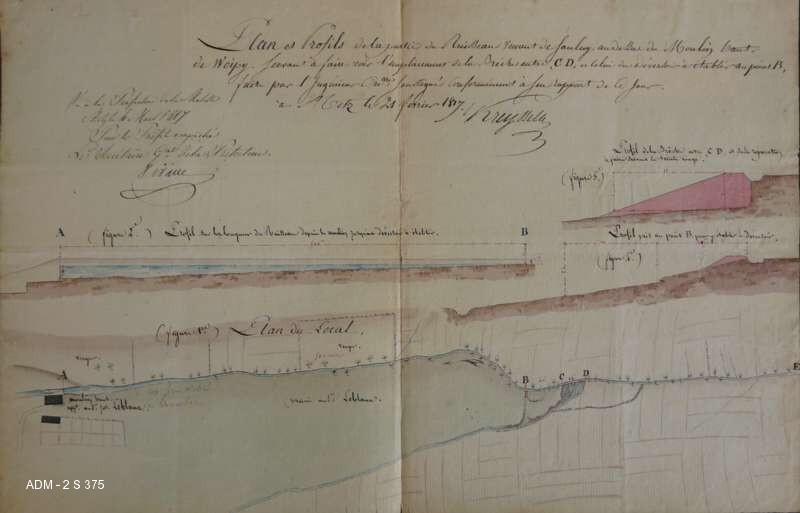 Plan et Profils de la partie du Ruisseau venant de Saulny, au dessus du Moulin haut
de Woipy, servant à faire voir l'emplacement de la Brèche entre C D, et celui du déversoir à établir au point B,
faite par l'Ingénieur soussigné conformément à son rapport de ce jour.
à Metz le 21 février 1817.
Vu à la Préfecture de la Moselle
Metz le Mars 1817
Pour le Préfet empêché
Le Secrétaire Gal de la Préfecture
Profil de la Brèche entre C D, et de la réparation
(figure 3e.)
A (figure 2e.) Profil sur la longueur du Ruisseau depuis le moulin jusqu'au déversoir à établir. B
Profil pris au point B pour y établir le déversoir.
(fig. 4e.)
(figure 1re.) Plan du Local.
verger
verger
A
B
C
D
E
moulin haut
app. au Sr. Leblanc
prairie au Sr. Leblanc.
ADM - 2 S 375